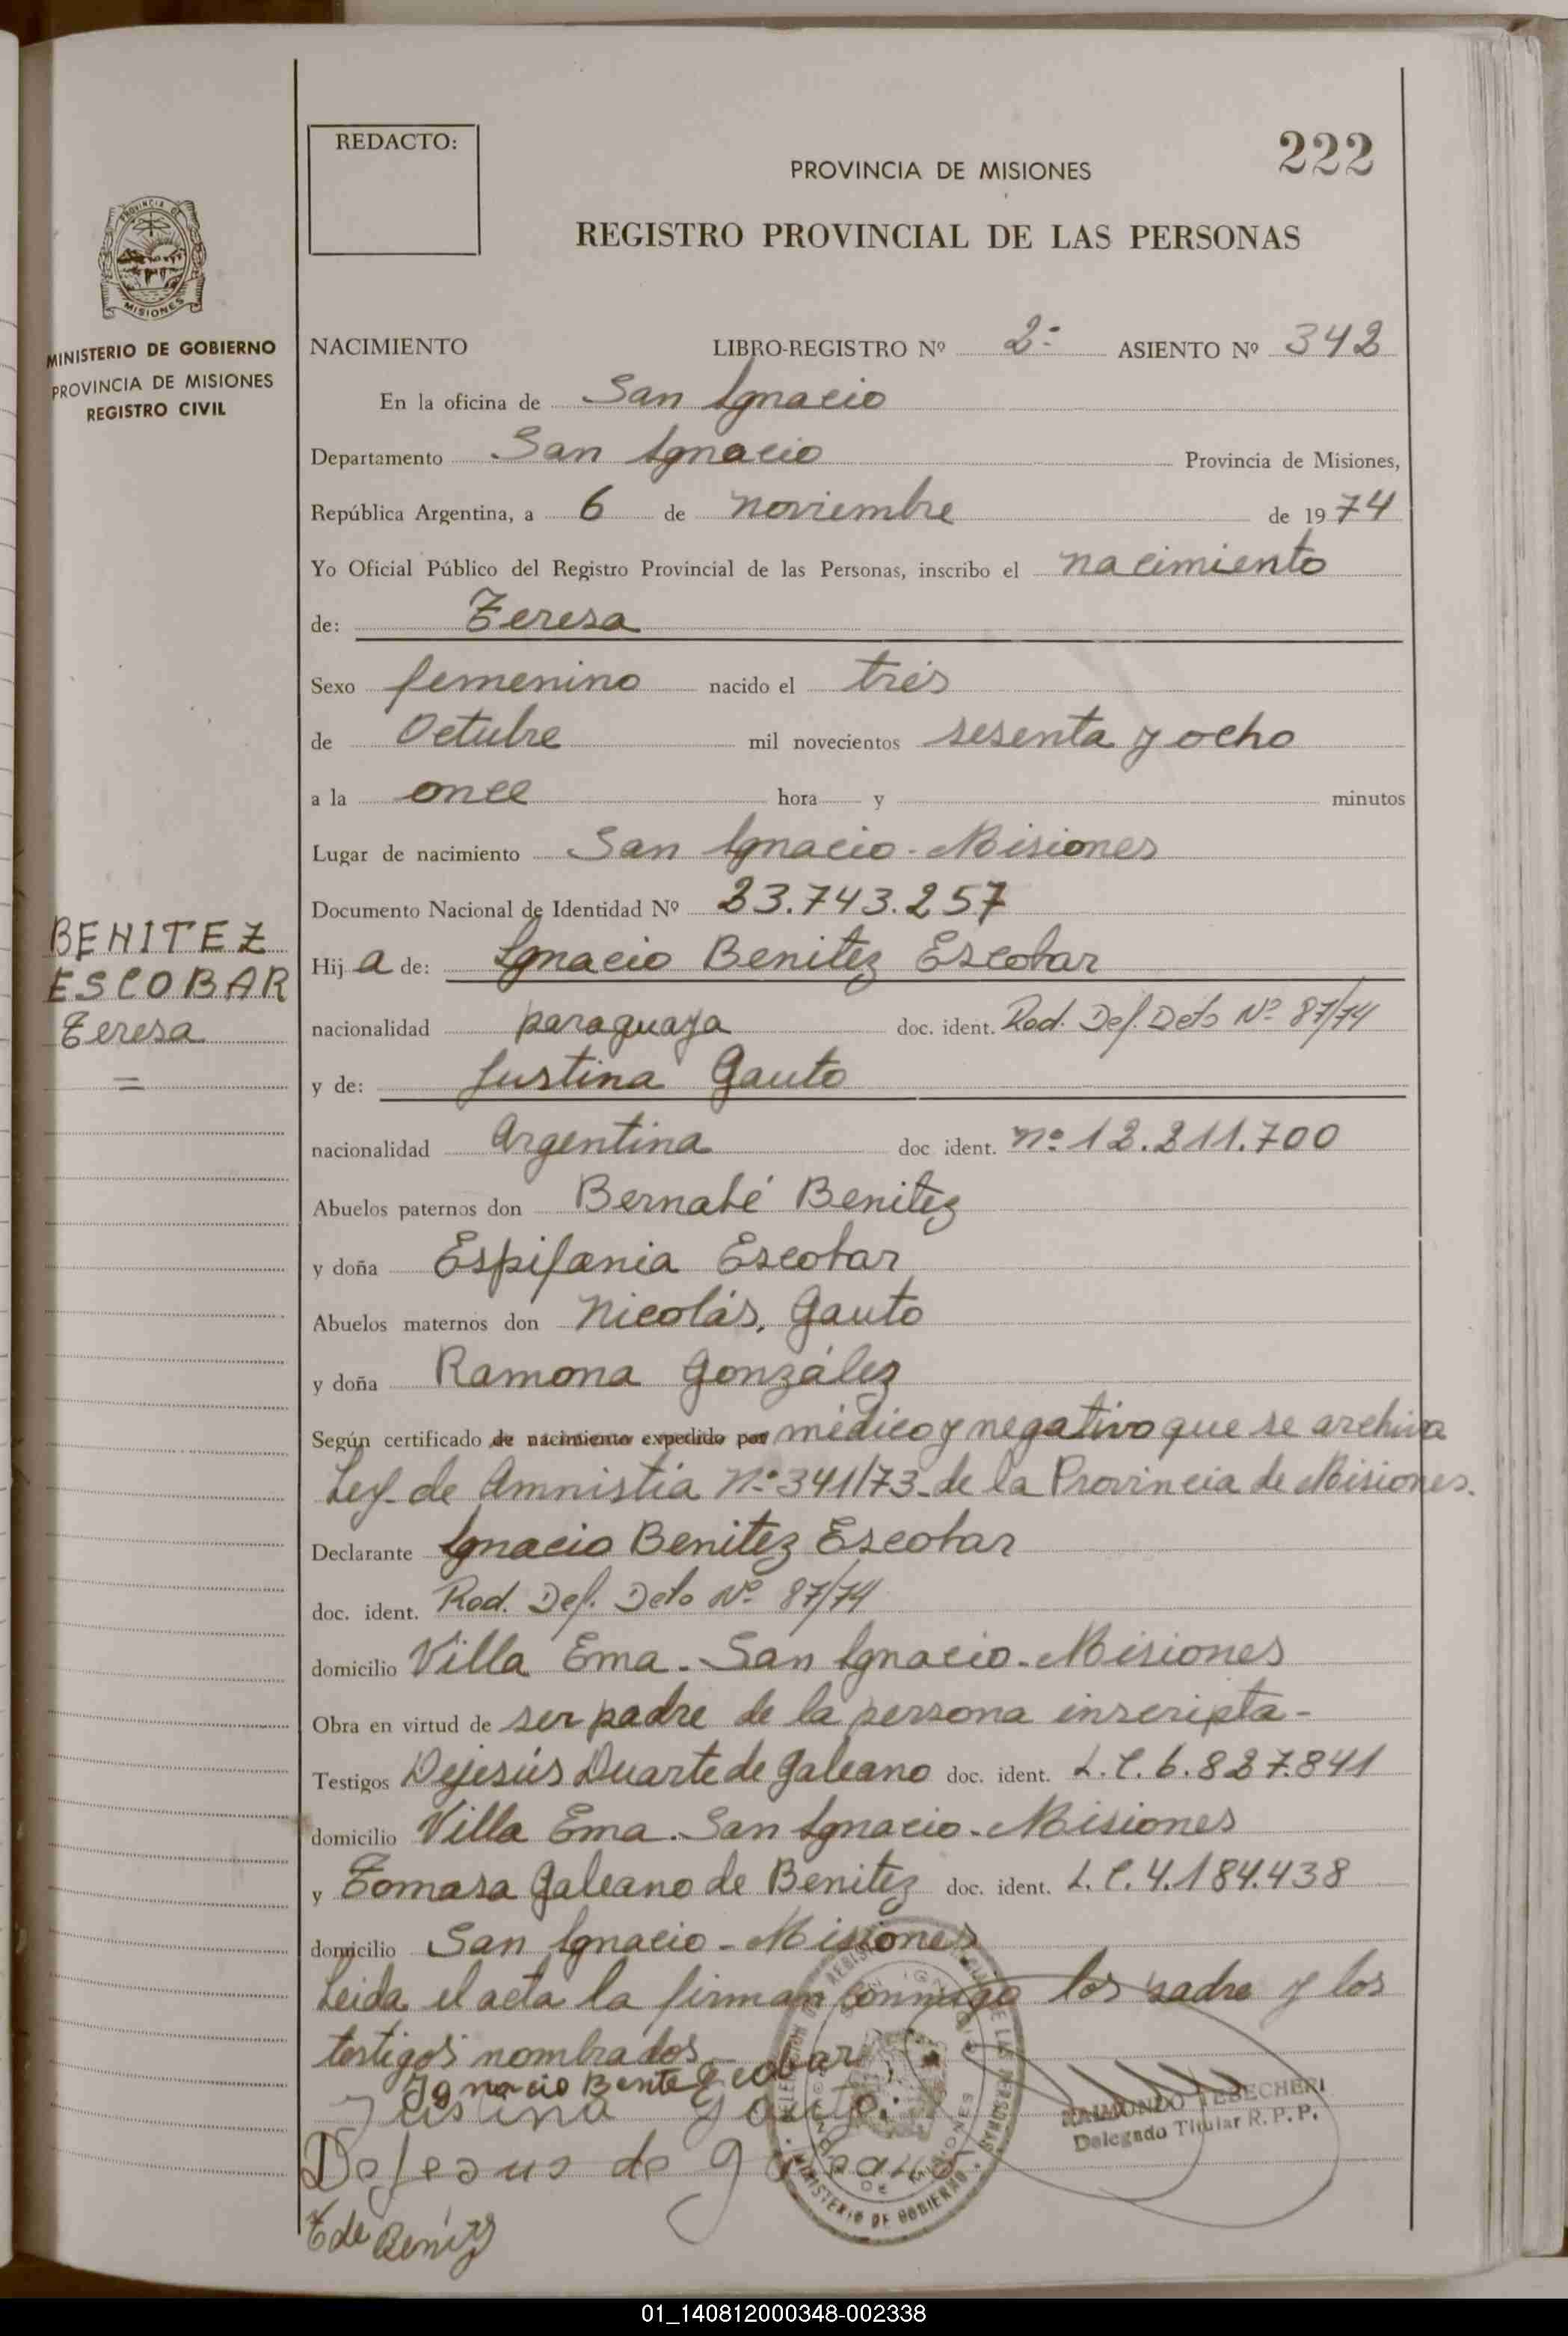 REDACTO:
222
PROVINCIA DE MISIONES
REGISTRO PROVINCIAL DE LAS PERSONAS
PROVINCIA DE
MISIONES
MINISTERIO DE GOBIERNO
PROVINCIA DE MISIONES
REGISTRO CIVIL
NACIMIENTO LIBRO-REGISTRO Nº 2- ASIENTO Nº 342
En la oficina de San Ignacio
Departamento San Ignacio Provincia de Misiones,
República Argentina, a 6 de noviembre de 1974
Yo Oficial Público del Registro Provincial de las Personas, inscribo el nacimiento
de: Teresa
Sexo femenino nacido el tres
de Octubre mil novecientos sesenta y ocho
a la once hora y minutos
Lugar de nacimiento San Ignacio - Misiones
Documento Nacional de Identidad Nº 23.743.257
BENITEZ
ESCOBAR
Teresa
=
Hija de: Ignacio Benitez Escobar
nacionalidad paraguaya doc. ident. Rad. Def. Deto Nº 87/74
y de: Justina Gauto
nacionalidad Argentina doc ident. nº 12.211.700
Abuelos paternos don Bernabé Benitez
y doña Espifania Escobar
Abuelos maternos don Nicolás, Gauto
y doña Ramona González
Según certificado de nacimiento expedido por médico y negativo que se archiva
Ley de Amnistia Nº 341/73 - de la Provincia de Misiones.
Declarante Ignacio Benitez Escobar
doc. ident. Rad. Def. Deto Nº 87/74
domicilio Villa Ema - San Ignacio - Misiones
Obra en virtud de ser padre de la persona inscripta -
Testigos Dejesús Duarte de Galeano doc. ident. L.C. 6.827.841
domicilio Villa Ema - San Ignacio - Misiones
y Tomasa Galeano de Benitez doc. ident. L.C. 4.184.438
domicilio San Ignacio - Misiones
Leida el acta la firman conmigo los padre y los
testigos nombrados -
Ignacio Bente Ecobar
Justina Gauto
RAIMONDO TEBECHERI
Delegado Titular R. P. P.
Dejesus de Galeano
T de Benitz
MINISTERIO DE GOBIERNO
01_140812000348-002338